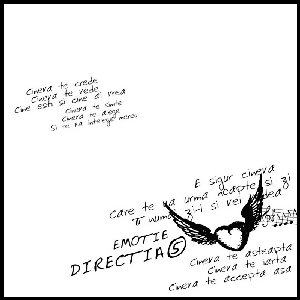 Cineva te crede
Cineva te vede
Cine esti si cine ai vrea
Cineva te simte
Cineva te alege
Si te va intelege mereu
E sigur cineva
Care te va urma noapte si zi
Ti numa zi-i si vei vedea
EMOTIE
DIRECTIA 5
Cineva te asteapta
Cineva te iarta
Cineva te accepta asa